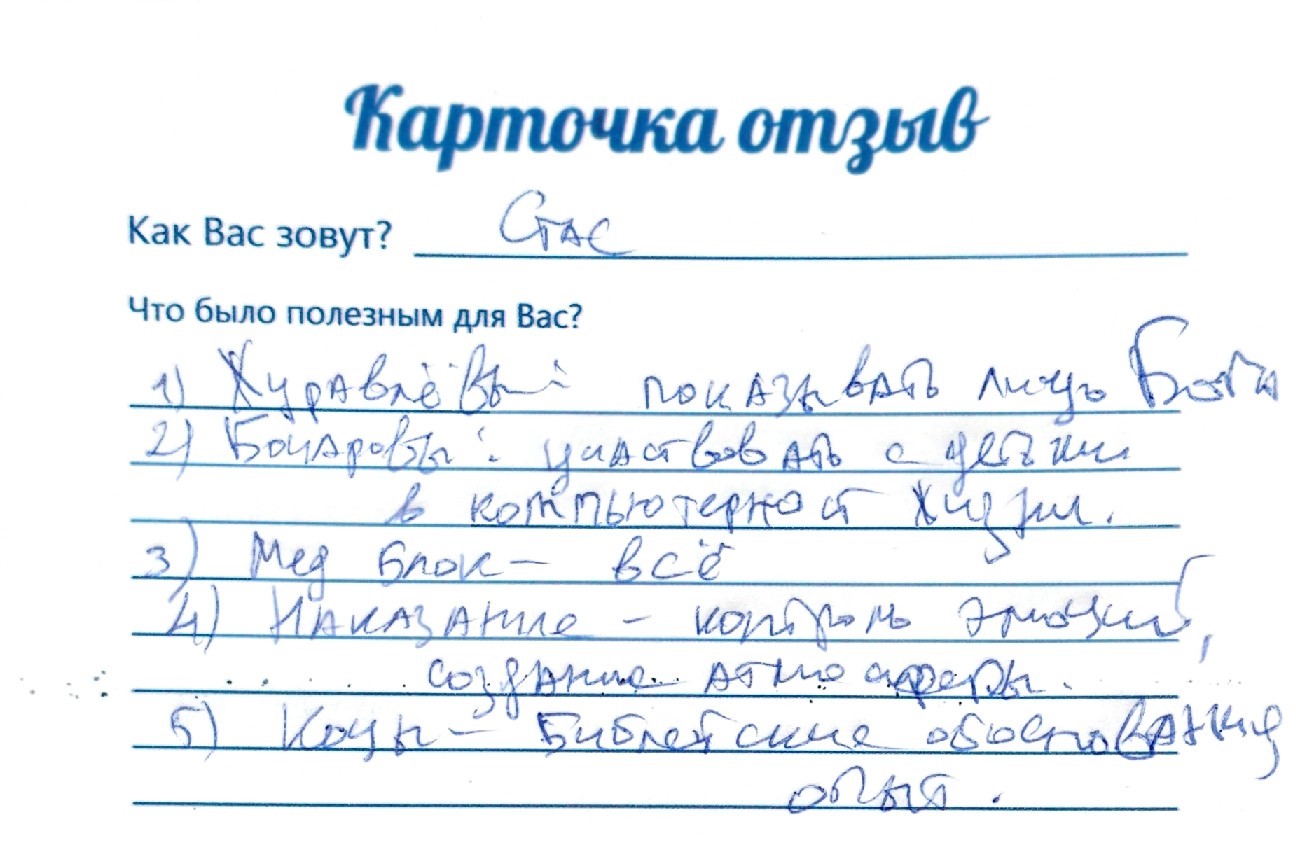 Карточка отзыв
Как Вас зовут? Стас
Что было полезным для Вас?
1) Журавлёвы: показывать лицо Бога
2) Бочаровы: участвовать с детьми
в компьютерной жизни.
3) Мед Блок – всё
4) Наказание – контроль эмоций,
создание атмосферы.
5) Коцы – Библейские обоснования
опыт.